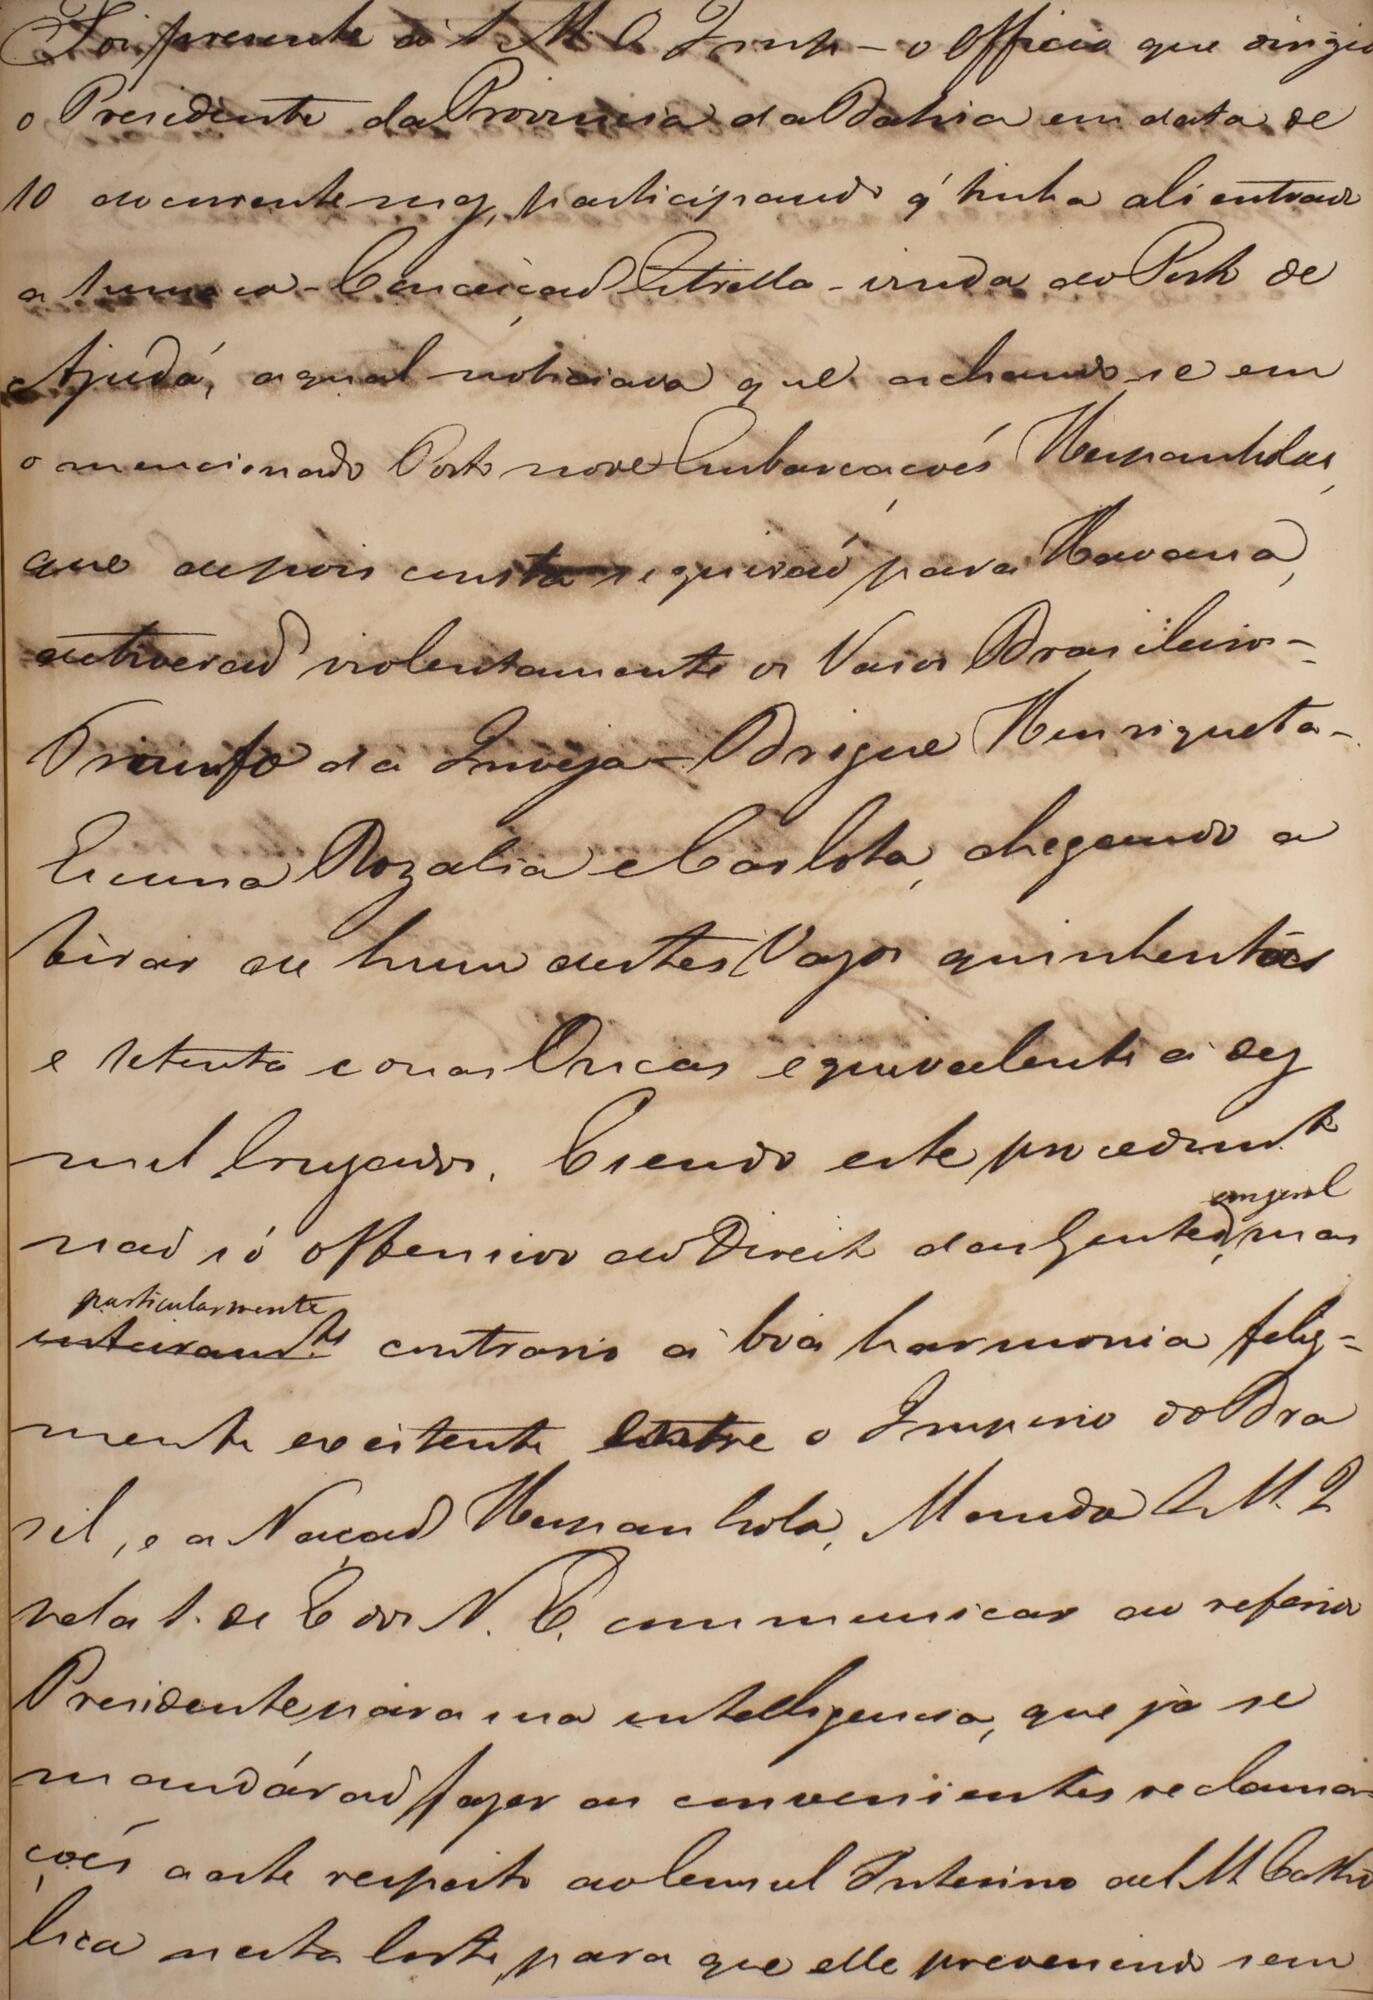 Foi presente á S. M. O Imp. – o Officio que dirigio
o Presidente da Provincia da Bahia em data de
10 do corrente mez, participando q' tinha ali entrado
a Sumaca – Conceiçaõ Estrella – vinda do Porto de
Ajudá, a qual noticiava que achando-se em
o mencionado Porto nove Embarcaçoẽs Hespanholas,
que depois consta seguiraõ para Havana,
detiveraõ violentamente os Vasos Brasileiros –
Triunfo da Inveja – Brigue Henriqueta –
Emma Rozalia e Carlota, chegando a
tirar de hum destes Vazos quinhentas
e setenta e onas Oncas equivalente á dez
mil Cruzados. E sendo este procedimto
naõ só offensivo do Direito das Gentes, em geral mas
particularmente
inteiramte contrario á boa harmonia feliz-
mente existente entre o Imperio do Bra
sil, e a Naçaõ Hespanhola, Manda S. M. I
pela S. de E dos N. E. communicar ao referido
Presidente para sua intelligencia, que já se
mandáraõ fazer as convenientes reclama-
çoẽs a este respeito ao Consul Interino de S. M. Catho
lica nesta Corte, para que elle prevenindo sem